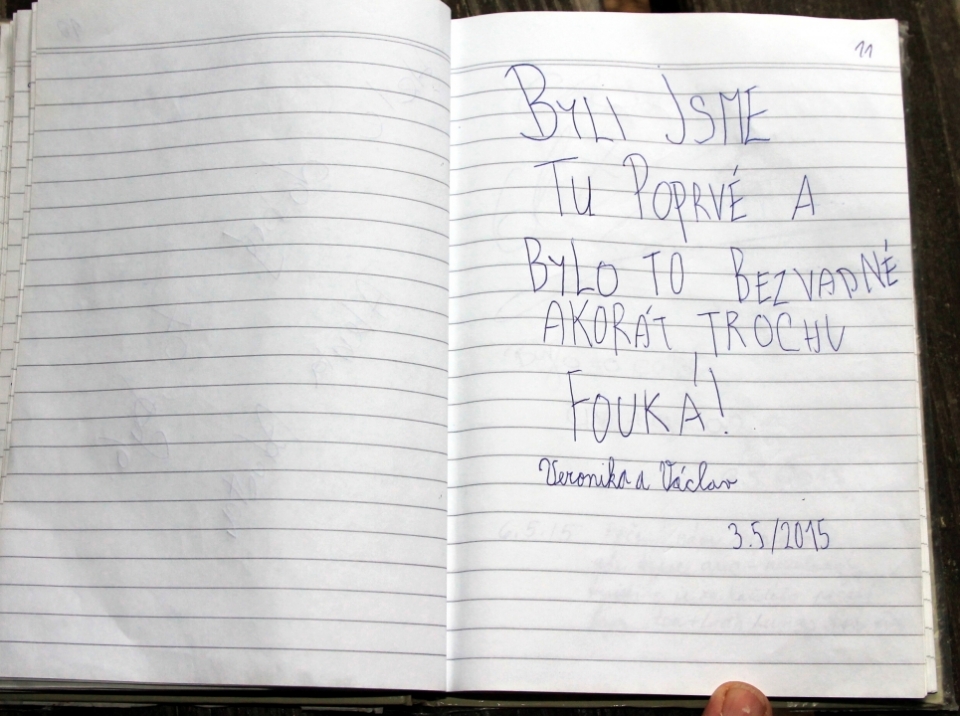 11
BYLI JSME
TU POPRVÉ A
BYLO TO BEZVADNÉ
AKORÁT TROCHU
FOUKÁ!
Veronika a Václav
3.5/2015
6.5.15